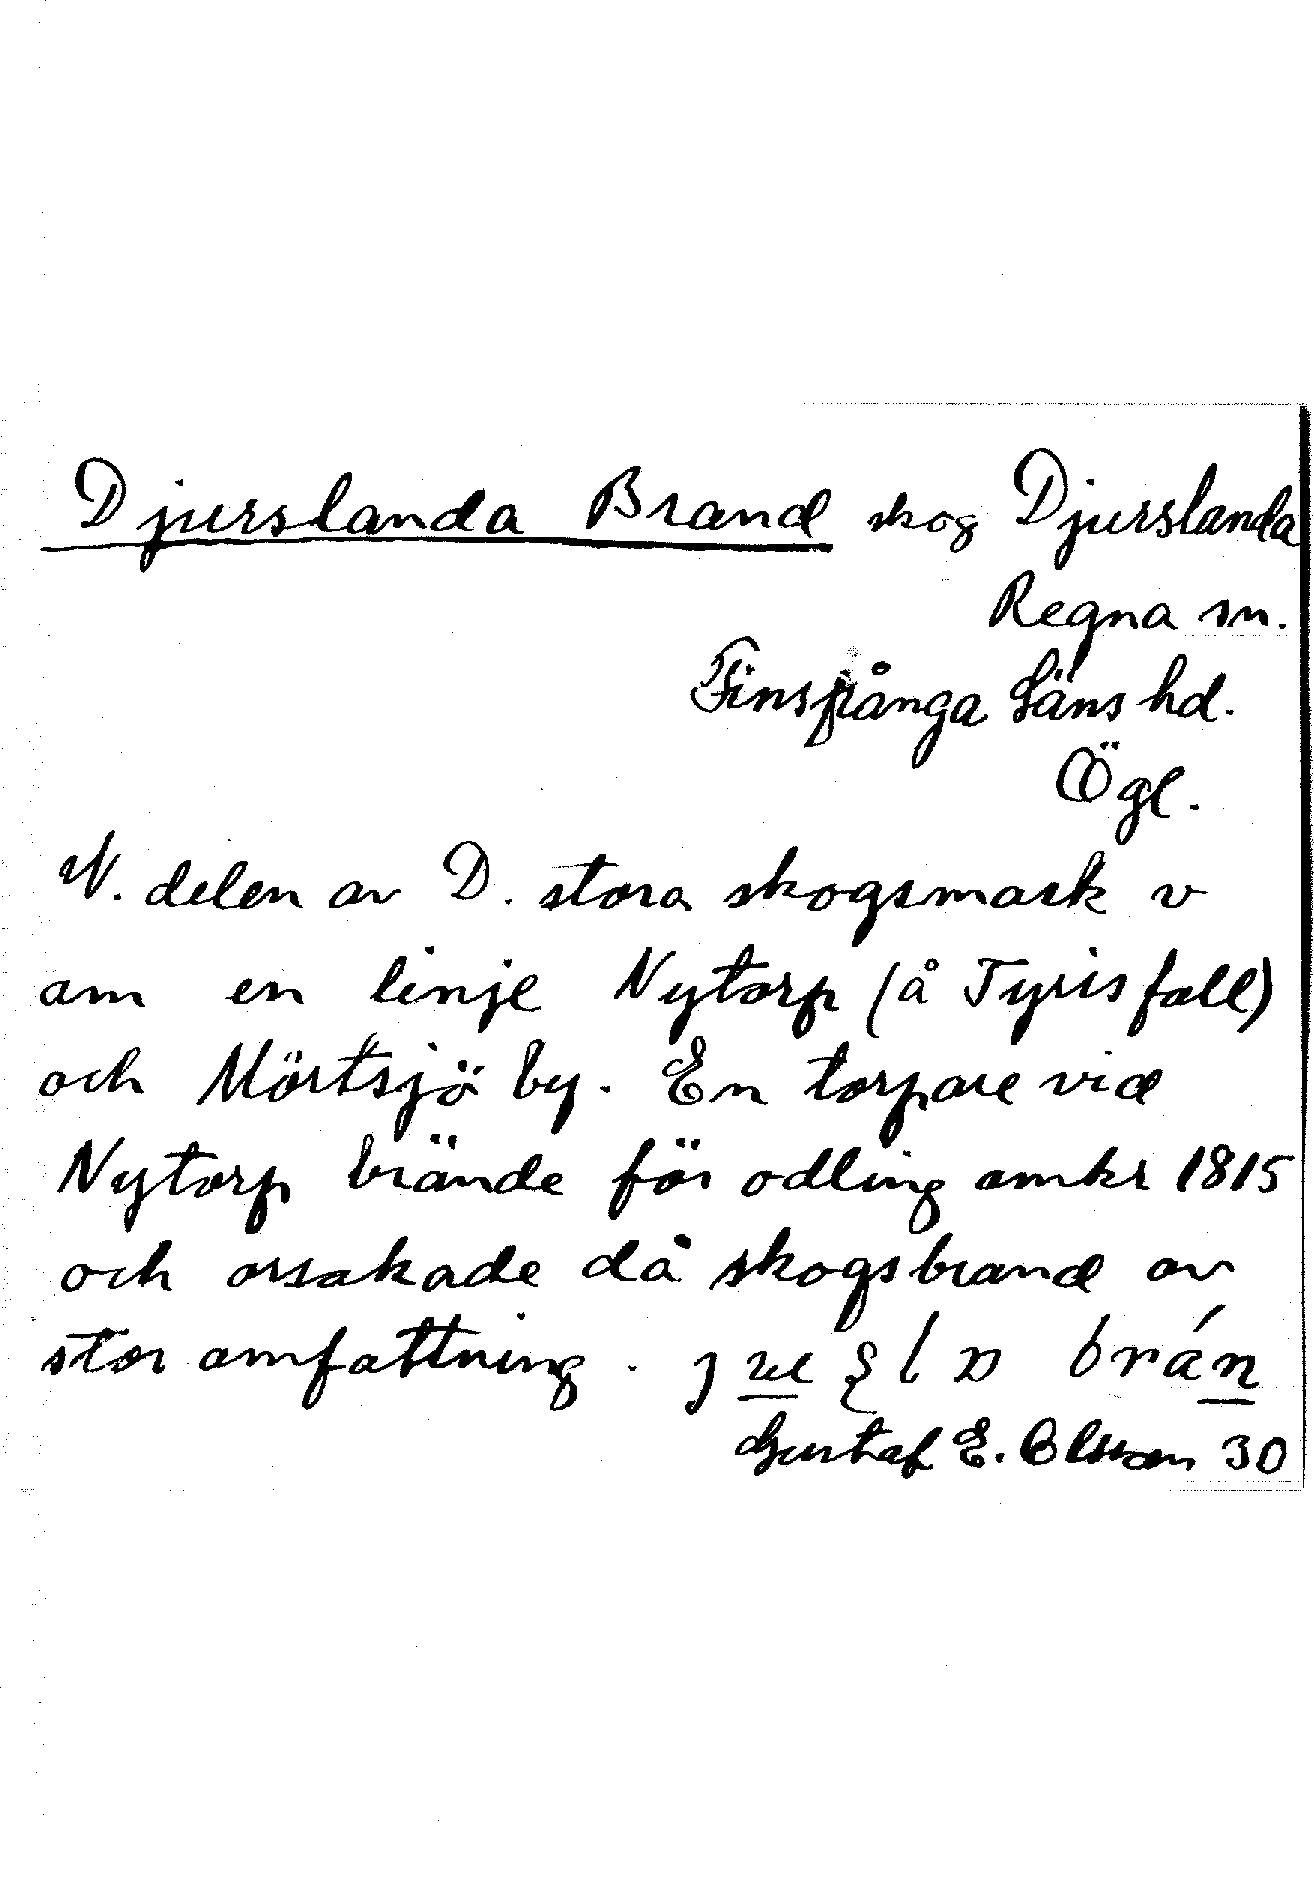 Djurslanda Brand skog Djurslanda
Regna sn.
Finspånga Läns hd.
Ögl.
N. delen av D. stora skogsmark v
om en linje Nytorp (å Tyrisfall)
och Mörtsjö by. En torpare vid
Nytorp brände för odling omkr 1815
och orsakade då skogsbrand av
stor omfattning. brán
Gustaf E. Olsson 30